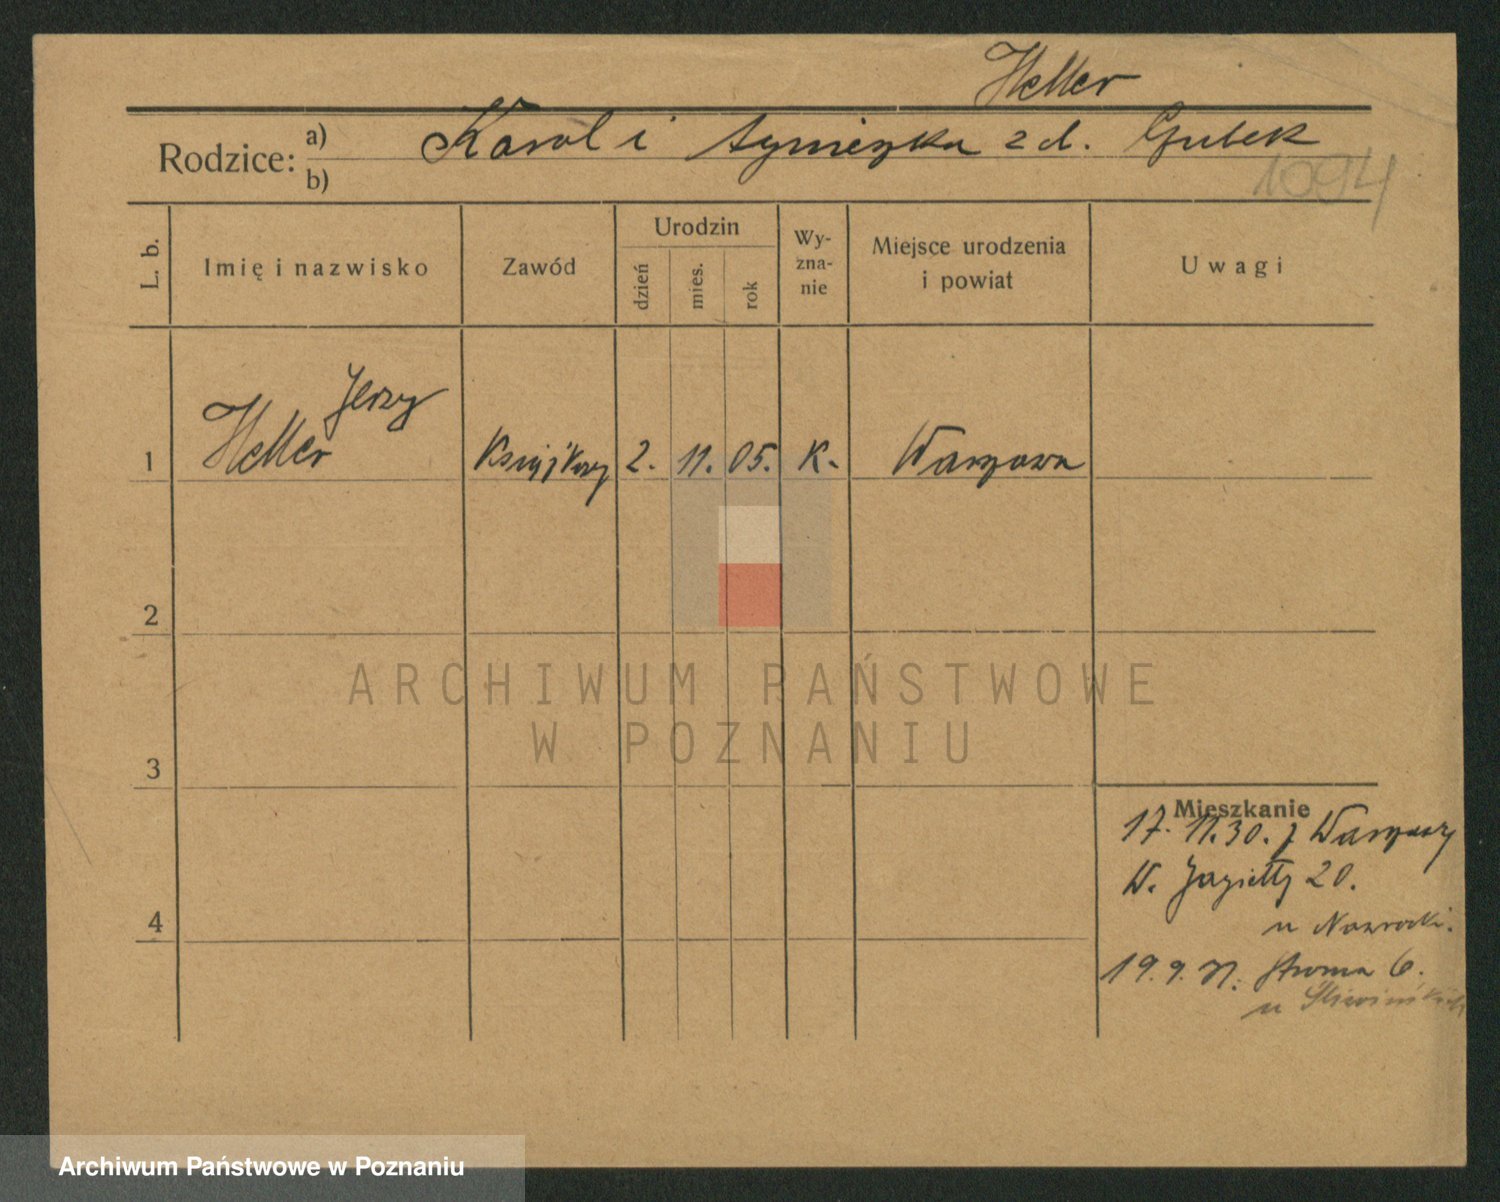 Heller
Rodzice: a) Karol i Agnieszka z d. Gubek
b)
1094
L. b. Imię i nazwisko Zawód Urodzin dzień mies. rok Wy-zna-nie Miejsce urodzenia i powiat Uwagi
Jerzy
1 Heller 2. 11. 05. K. Warszawa
2
ARCHIWUM PAŃSTWOWE
W POZNANIU
3
Mieszkanie
17. 11. 30. z Warszawy
W. Jagiełły 20.
4
u Nawrocki.
19. 9. 31. Stroma 6.
u
Archiwum Państwowe w Poznaniu